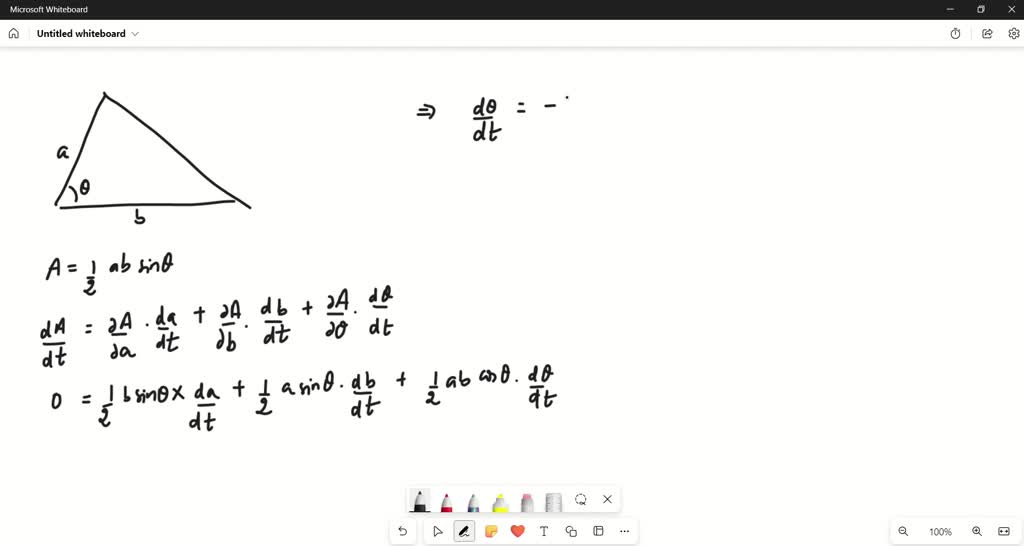 Microsoft Whiteboard
Untitled whiteboard
a
θ
b
⇒ dθ/dt = -
A = 1/2 ab sinθ
dA/dt = ∂A/∂a · da/dt + ∂A/∂b · db/dt + ∂A/∂θ · dθ/dt
0 = 1/2 b sinθ × da/dt + 1/2 a sinθ · db/dt + 1/2 ab cosθ · dθ/dt
T
100%